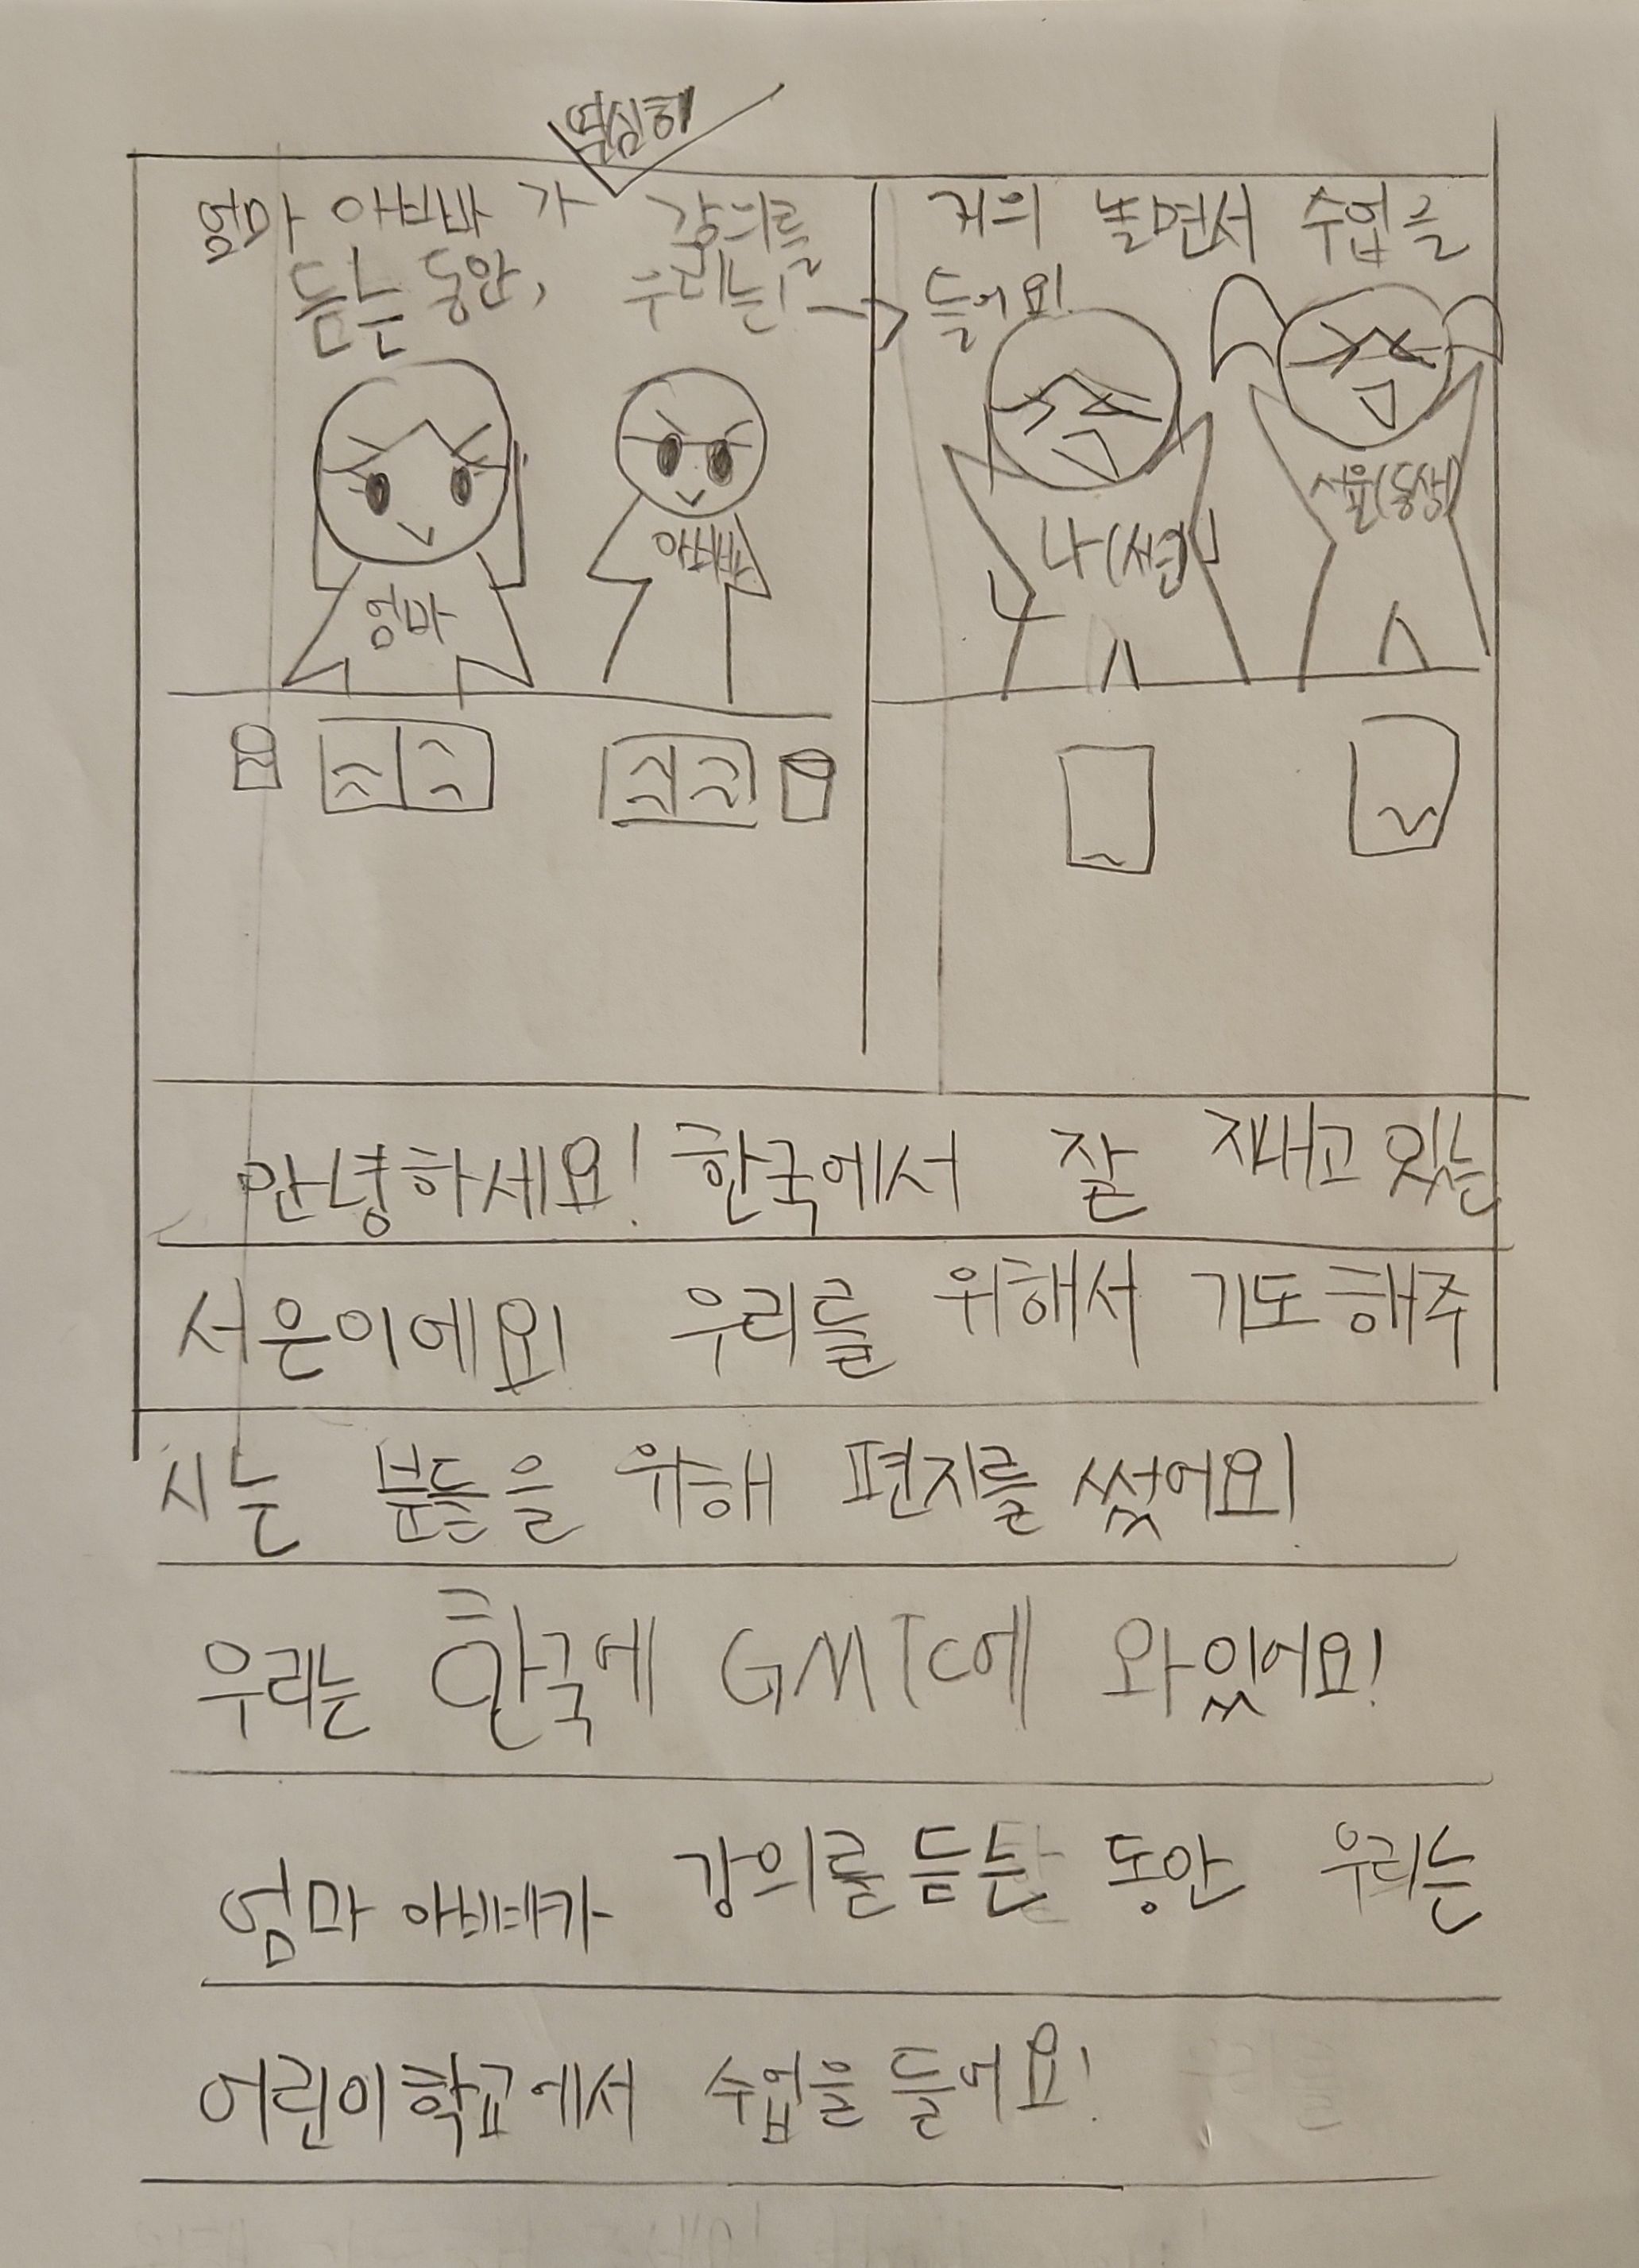 열심히
엄마 아빠가 강의를
듣는 동안, 우리는!
거의 놀면서 수업을
들어요!
엄마
아빠
나(서은)
서윤(동생)
안녕하세요! 한국에서 잘 지내고 있는
서은이에요! 우리들을 위해서 기도해주
시는 분들을 위해 편지를 썼어요!
우리는 한국에 GMTC에 와있어요!
엄마 아빠가 강의를 듣는 동안 우리는
어린이학교에서 수업을 들어요!